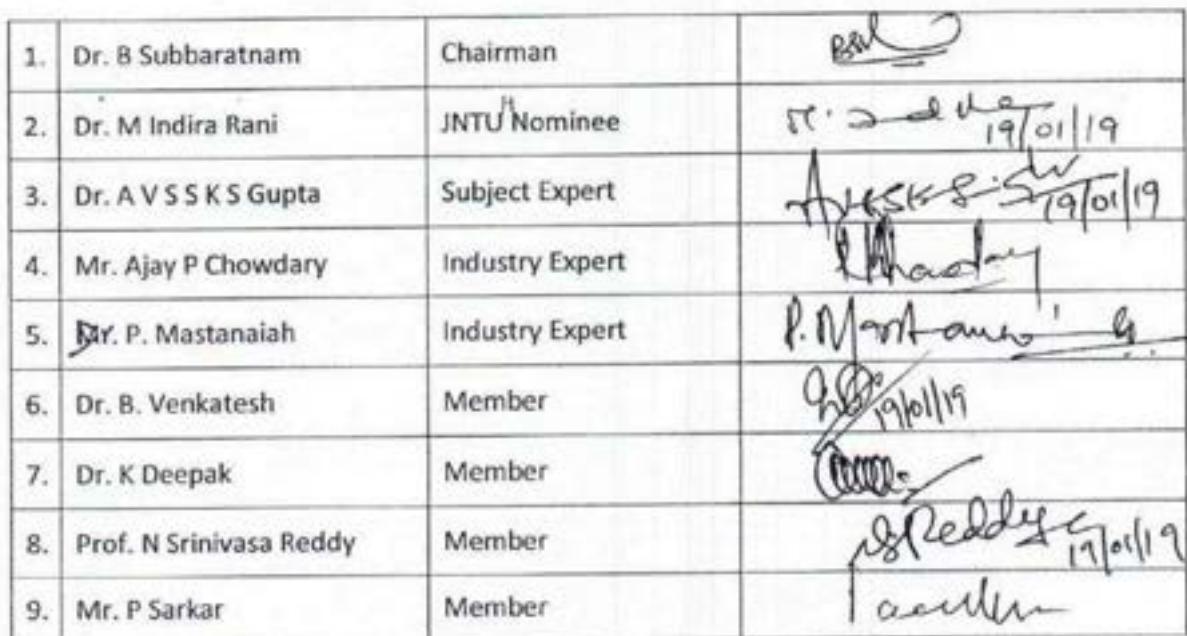 1. Dr. B Subbaratnam Chairman
2. Dr. M Indira Rani JNTUH Nominee 19/01/19
3. Dr. A V S S K S Gupta Subject Expert 19/01/19
4. Mr. Ajay P Chowdary Industry Expert
5. Dr. P. Mastanaiah Industry Expert P.
6. Dr. B. Venkatesh Member 19/01/19
7. Dr. K Deepak Member
8. Prof. N Srinivasa Reddy Member Reddy 19/01/19
9. Mr. P Sarkar Member